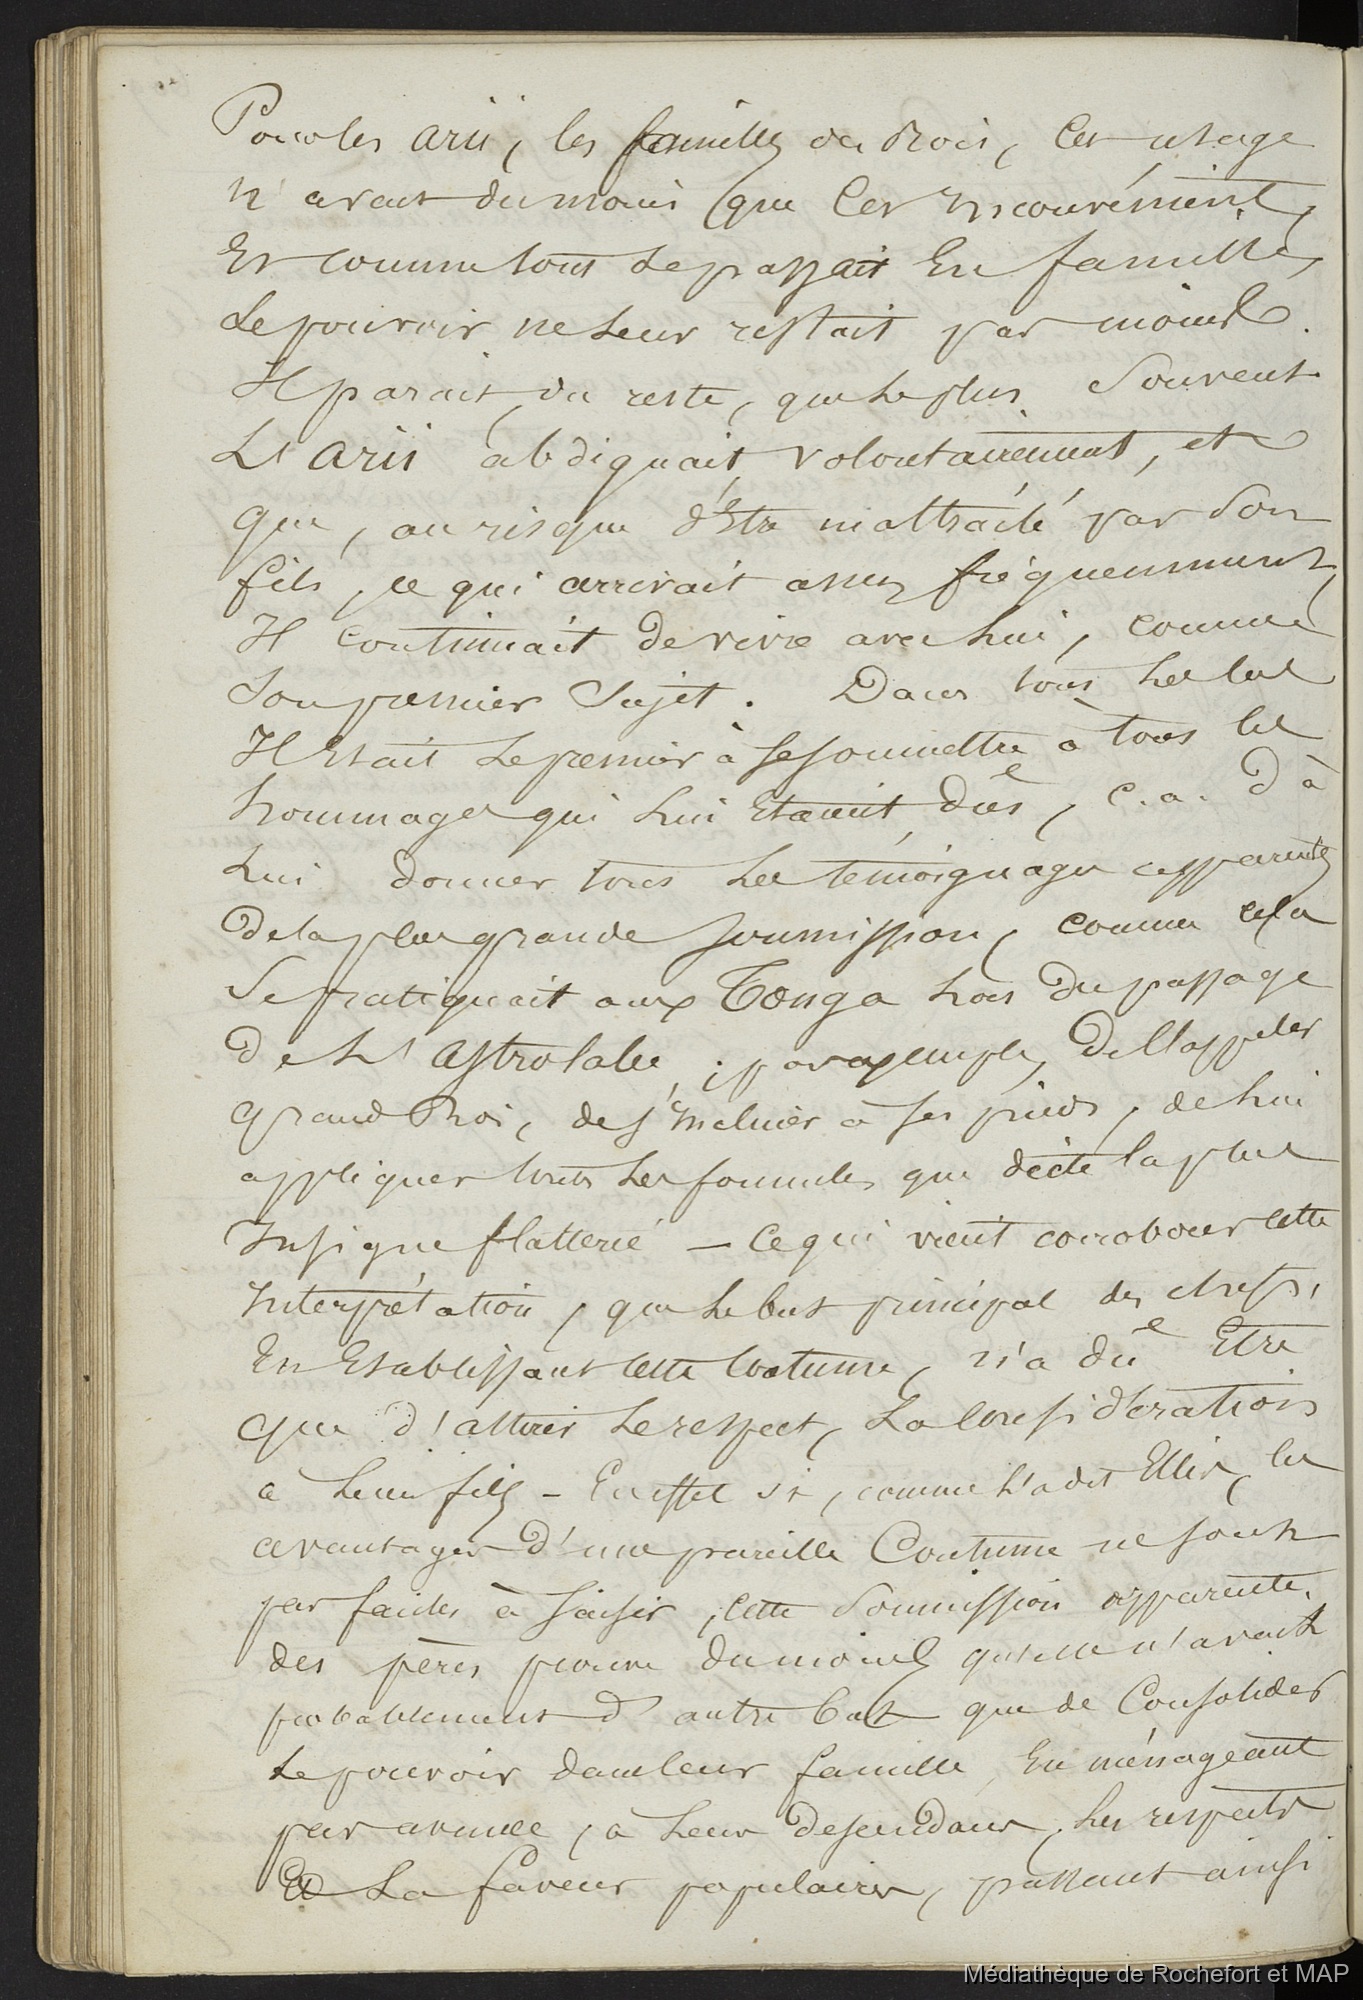 Pour les arii, les familles des Rois, cet usage
n'avait du moins que cet inconvénient,
Et comme tout se passait En famille,
le pouvoir ne leur restait pas moins.
Il parait, du reste, que le plus Souvent
L'arii abdiquait volontairement, et
que, au risque d'Etre maltraité par Son
fils, ce qui arrivait assez fréquemment,
Il continuait de vivre avec lui, comme
Son premier Sujet. Dans tous les cas
Il Etait le premier à se soumettre à tous les
hommages qui lui Etaient dûes, c.a.d à
lui donner tous les témoignages apparents
de la plus grande soumission, comme cela
Se pratiquait aux Tonga lors du passage
De L'astrolabe; par exemple, de l'appeler
grand Roi, de s'incliner à ses pieds, de lui
appliquer toutes les formules que dicte la plus
Insigne flatterie — Ce qui vient corroborer cette
Interprétation, que le but principal des chefs,
En Etablissant cette Coutume, n'a dûe Etre
que d'attirer le respect, La Considération
a leur fils — En effet si, comme l'a dit Ellis, les
avantages d'une pareille Coutume ne sont
pas faciles à saisir, cette Soumission apparente
des pères prouve du moins qu'elle n'avait
probablement d'autre but que de Consolider
le pouvoir dans leur famille, En ménageant
par avance, a leur descendans, les respects
Et La faveur populaires, passant ainsi
Médiathèque de Rochefort et MAP